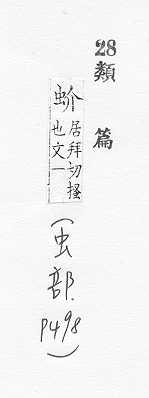 28類篇
蚧居拜切搔
也文一
(虫部.
P498)